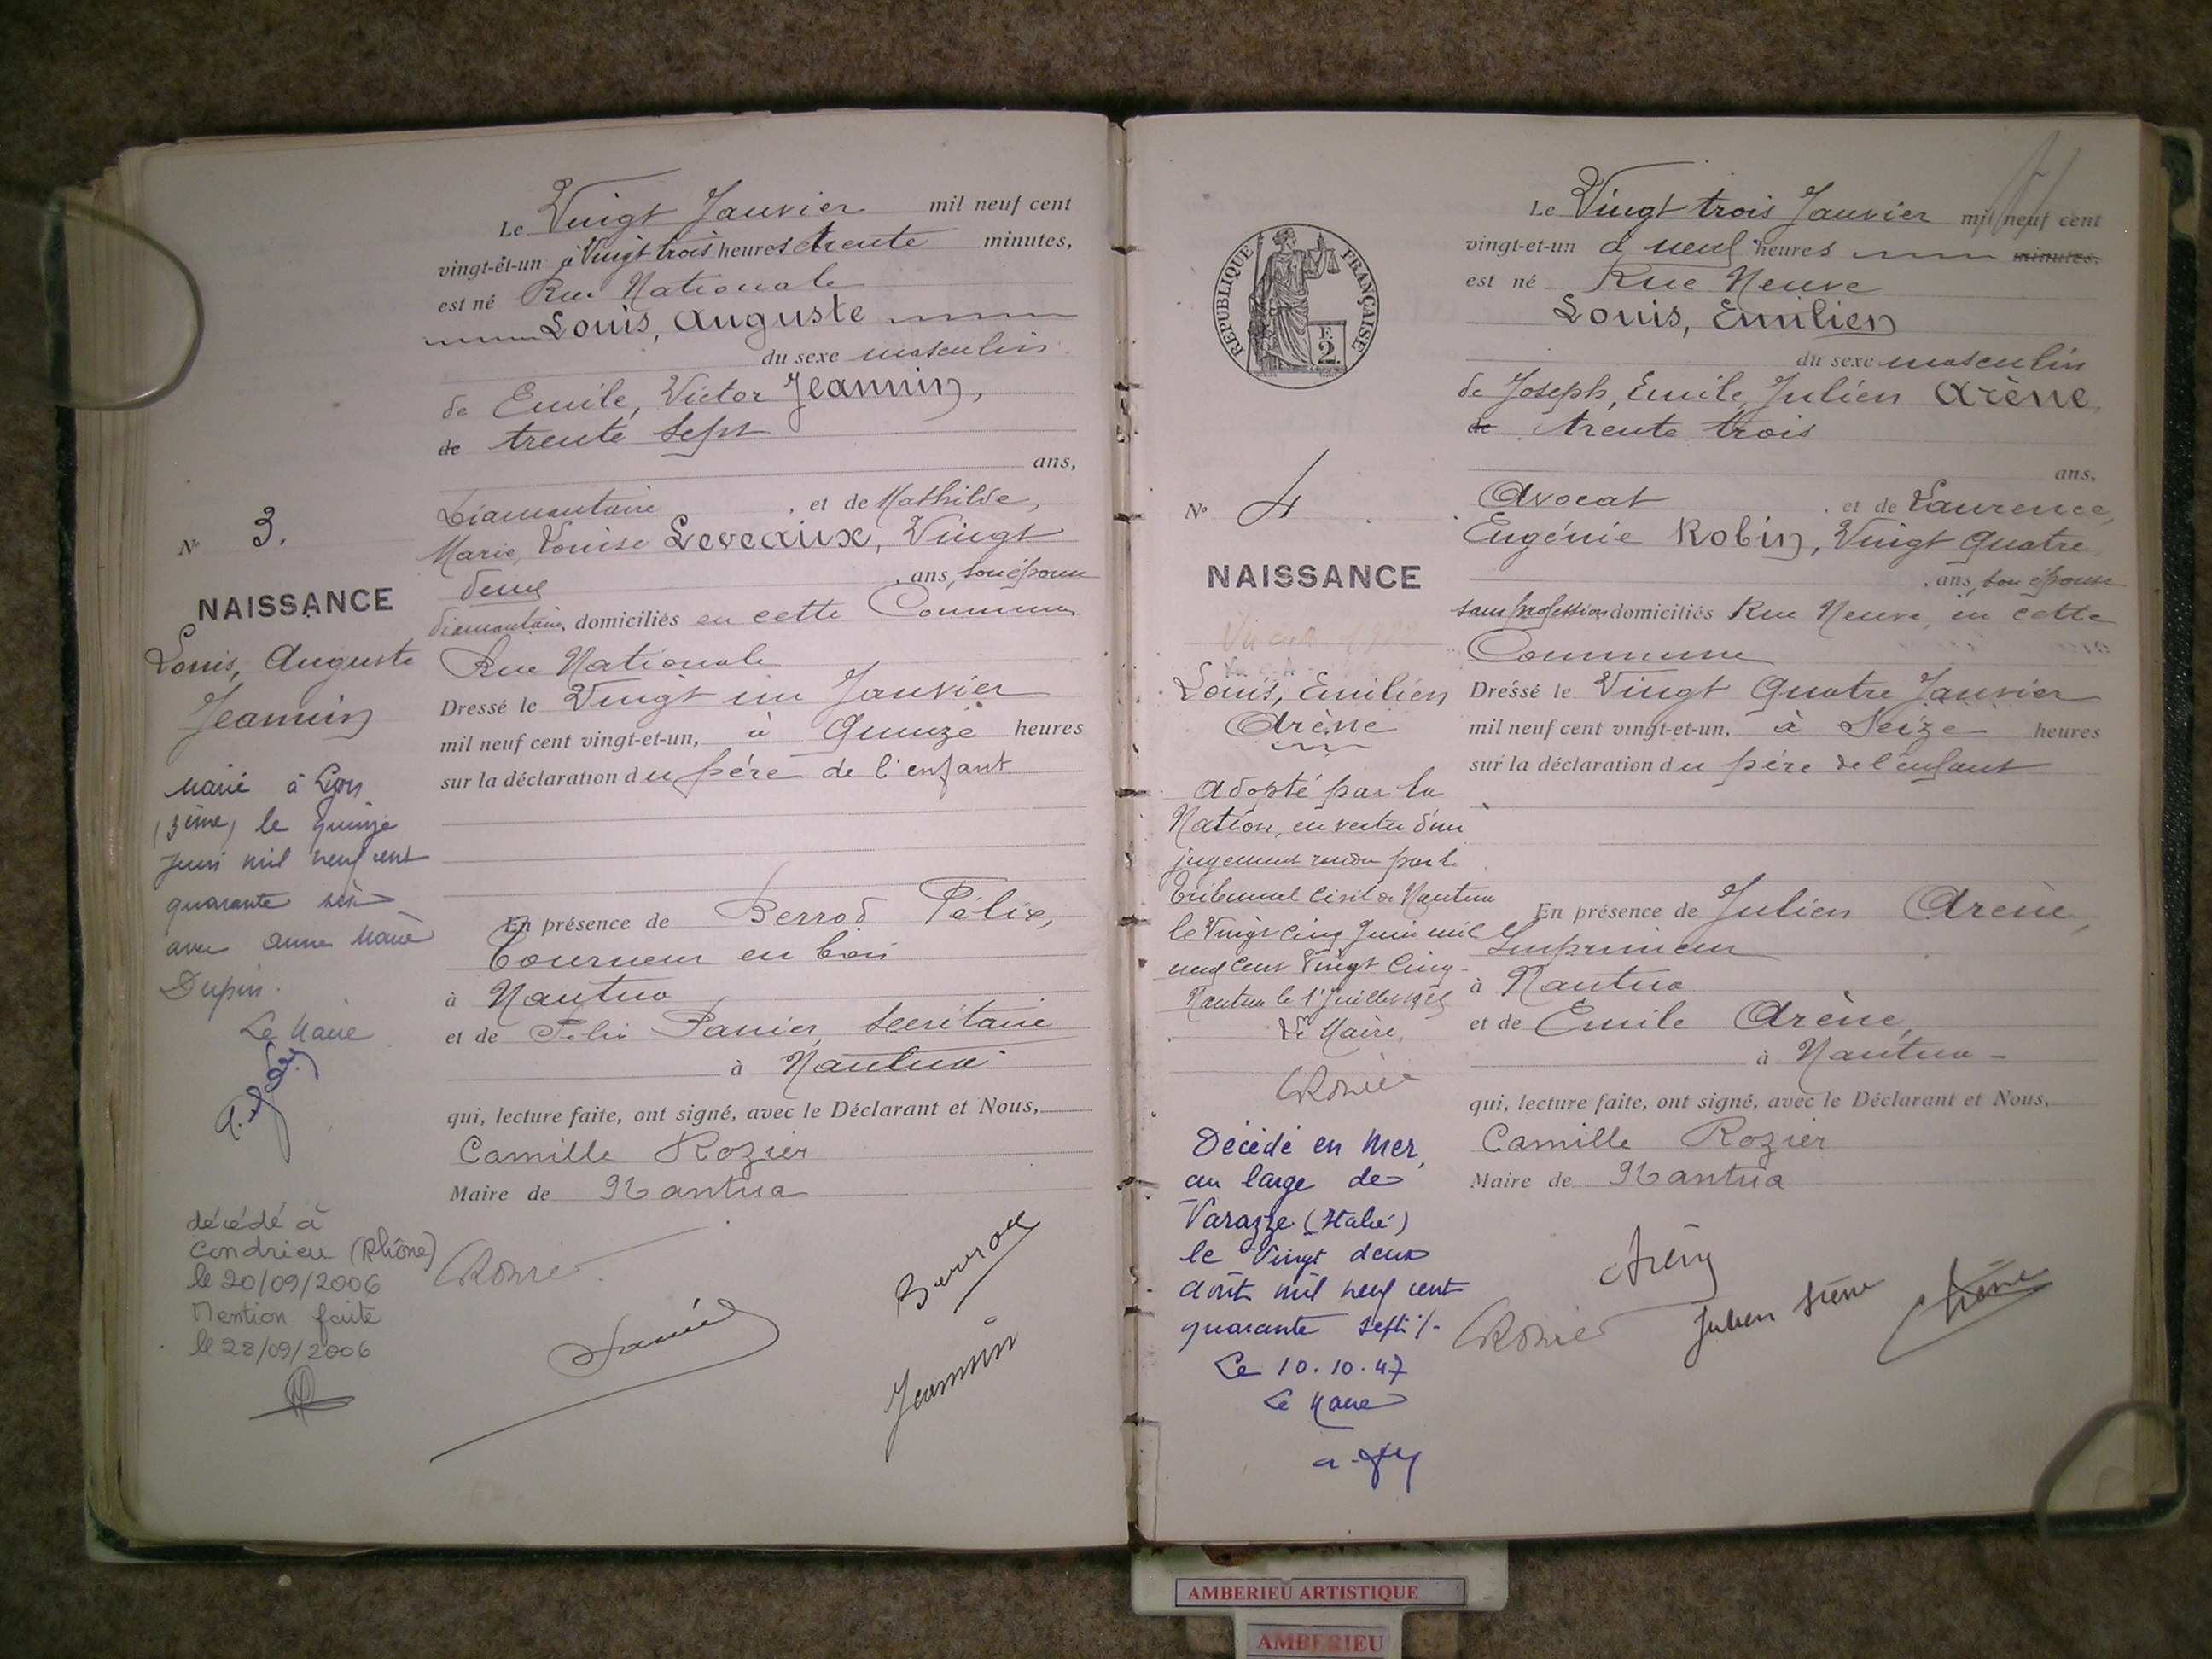 Le Vingt Janvier mil neuf cent
vingt-et-un à Vingt trois heures trente minutes,
est né Rue Nationale
Louis, Auguste
du sexe masculin
de Emile, Victor Jeannin,
de trente sept
ans,
Diamantaire, et de Mathilde,
Marie, Louise Leveaux, Vingt
deux ans, son épouse
diamantaire, domiciliés en cette Commune
Rue Nationale
Dressé le Vingt un Janvier
mil neuf cent vingt-et-un, à Quinze heures
sur la déclaration du père de l'enfant
En présence de Berrod Félix,
Tourneur en bois
à Nantua
et de Félix Panier, secrétaire
à Nantua
qui, lecture faite, ont signé, avec le Déclarant et Nous,
Camille Rozier
Maire de Nantua
CRozier
Panier
Berrod
Jeannin
No 3.
NAISSANCE
Louis, Auguste
Jeannin
Marié à Lyon
(3ème) le quinze
juin mil neuf cent
quarante six
avec Anne Marie
Dupin.
Le Maire
décédé à
Condrieu (Rhône)
le 20/09/2006
Mention faite
le 28/09/2006
RÉPUBLIQUE FRANÇAISE
2
Le Vingt trois Janvier mil neuf cent
vingt-et-un à neuf heures minutes.
est né Rue Neuve
Louis, Emilien
du sexe masculin
de Joseph, Emile, Julien Arène,
de trente trois
ans,
Avocat, et de Laurence,
Eugénie Robin, Vingt Quatre
ans, son épouse
sans profession domiciliés Rue Neuve, en cette
Commune
Dressé le Vingt Quatre Janvier
mil neuf cent vingt-et-un, à Seize heures
sur la déclaration du père de l'enfant
En présence de Julien Arène,
Imprimeur
à Nantua
et de Emile Arène,
à Nantua -
qui, lecture faite, ont signé, avec le Déclarant et Nous,
Camille Rozier
Maire de Nantua
Arène
CRozier
Julien Arène
Arène
No 4
NAISSANCE
Louis, Emilien
Arène
Adopté par la
Nation, en vertu d'un
jugement rendu par le
Tribunal Civil de Nantua
le Vingt cinq Juin mil
neuf cent Vingt Cinq -
Nantua le 1er Juillet 1925
Le Maire,
CRozier
Décédé en Mer,
au large de
Varazze (Italie)
le Vingt deux
Août mil neuf cent
quarante sept ./.
Le 10.10.47
Le Maire
AMBERIEU ARTISTIQUE
AMBERIEU